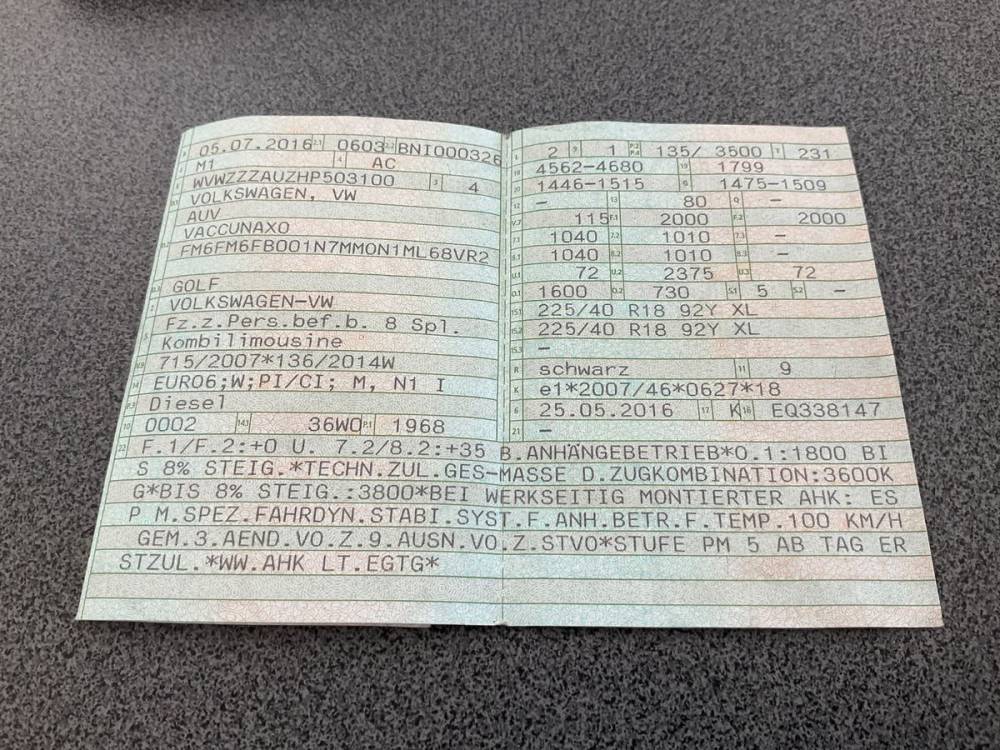 05.07.2016 0603 BNI000326
M1 AC
WVWZZZAUZHP503100 4
VOLKSWAGEN, VW
AUV
VACCUNAX0
FM6FM6FB001N7MMON1ML68VR2
GOLF
VOLKSWAGEN-VW
Fz.z.Pers.bef.b. 8 Spl.
Kombilimousine
715/2007*136/2014W
EURO6;W;PI/CI; M, N1 I
Diesel
0002 36W0 1968
2 1 135/ 3500 231
4562-4680 1799
1446-1515 1475-1509
- 80 -
115 2000 2000
1040 1010 -
1040 1010 -
72 2375 72
1600 730 5 -
225/40 R18 92Y XL
225/40 R18 92Y XL
-
schwarz 9
e1*2007/46*0627*18
25.05.2016 K EQ338147
-
F.1/F.2:+0 U. 7.2/8.2:+35 B.ANHÄNGEBETRIEB*O.1:1800 BI
S 8% STEIG.*TECHN.ZUL.GES-MASSE D.ZUGKOMBINATION:3600K
G*BIS 8% STEIG.:3800*BEI WERKSEITIG MONTIERTER AHK: ES
P M.SPEZ.FAHRDYN.STABI.SYST.F.ANH.BETR.F.TEMP.100 KM/H
GEM.3.AEND.VO.Z.9.AUSN.VO.Z.STVO*STUFE PM 5 AB TAG ER
STZUL.*WW.AHK LT.EGTG*